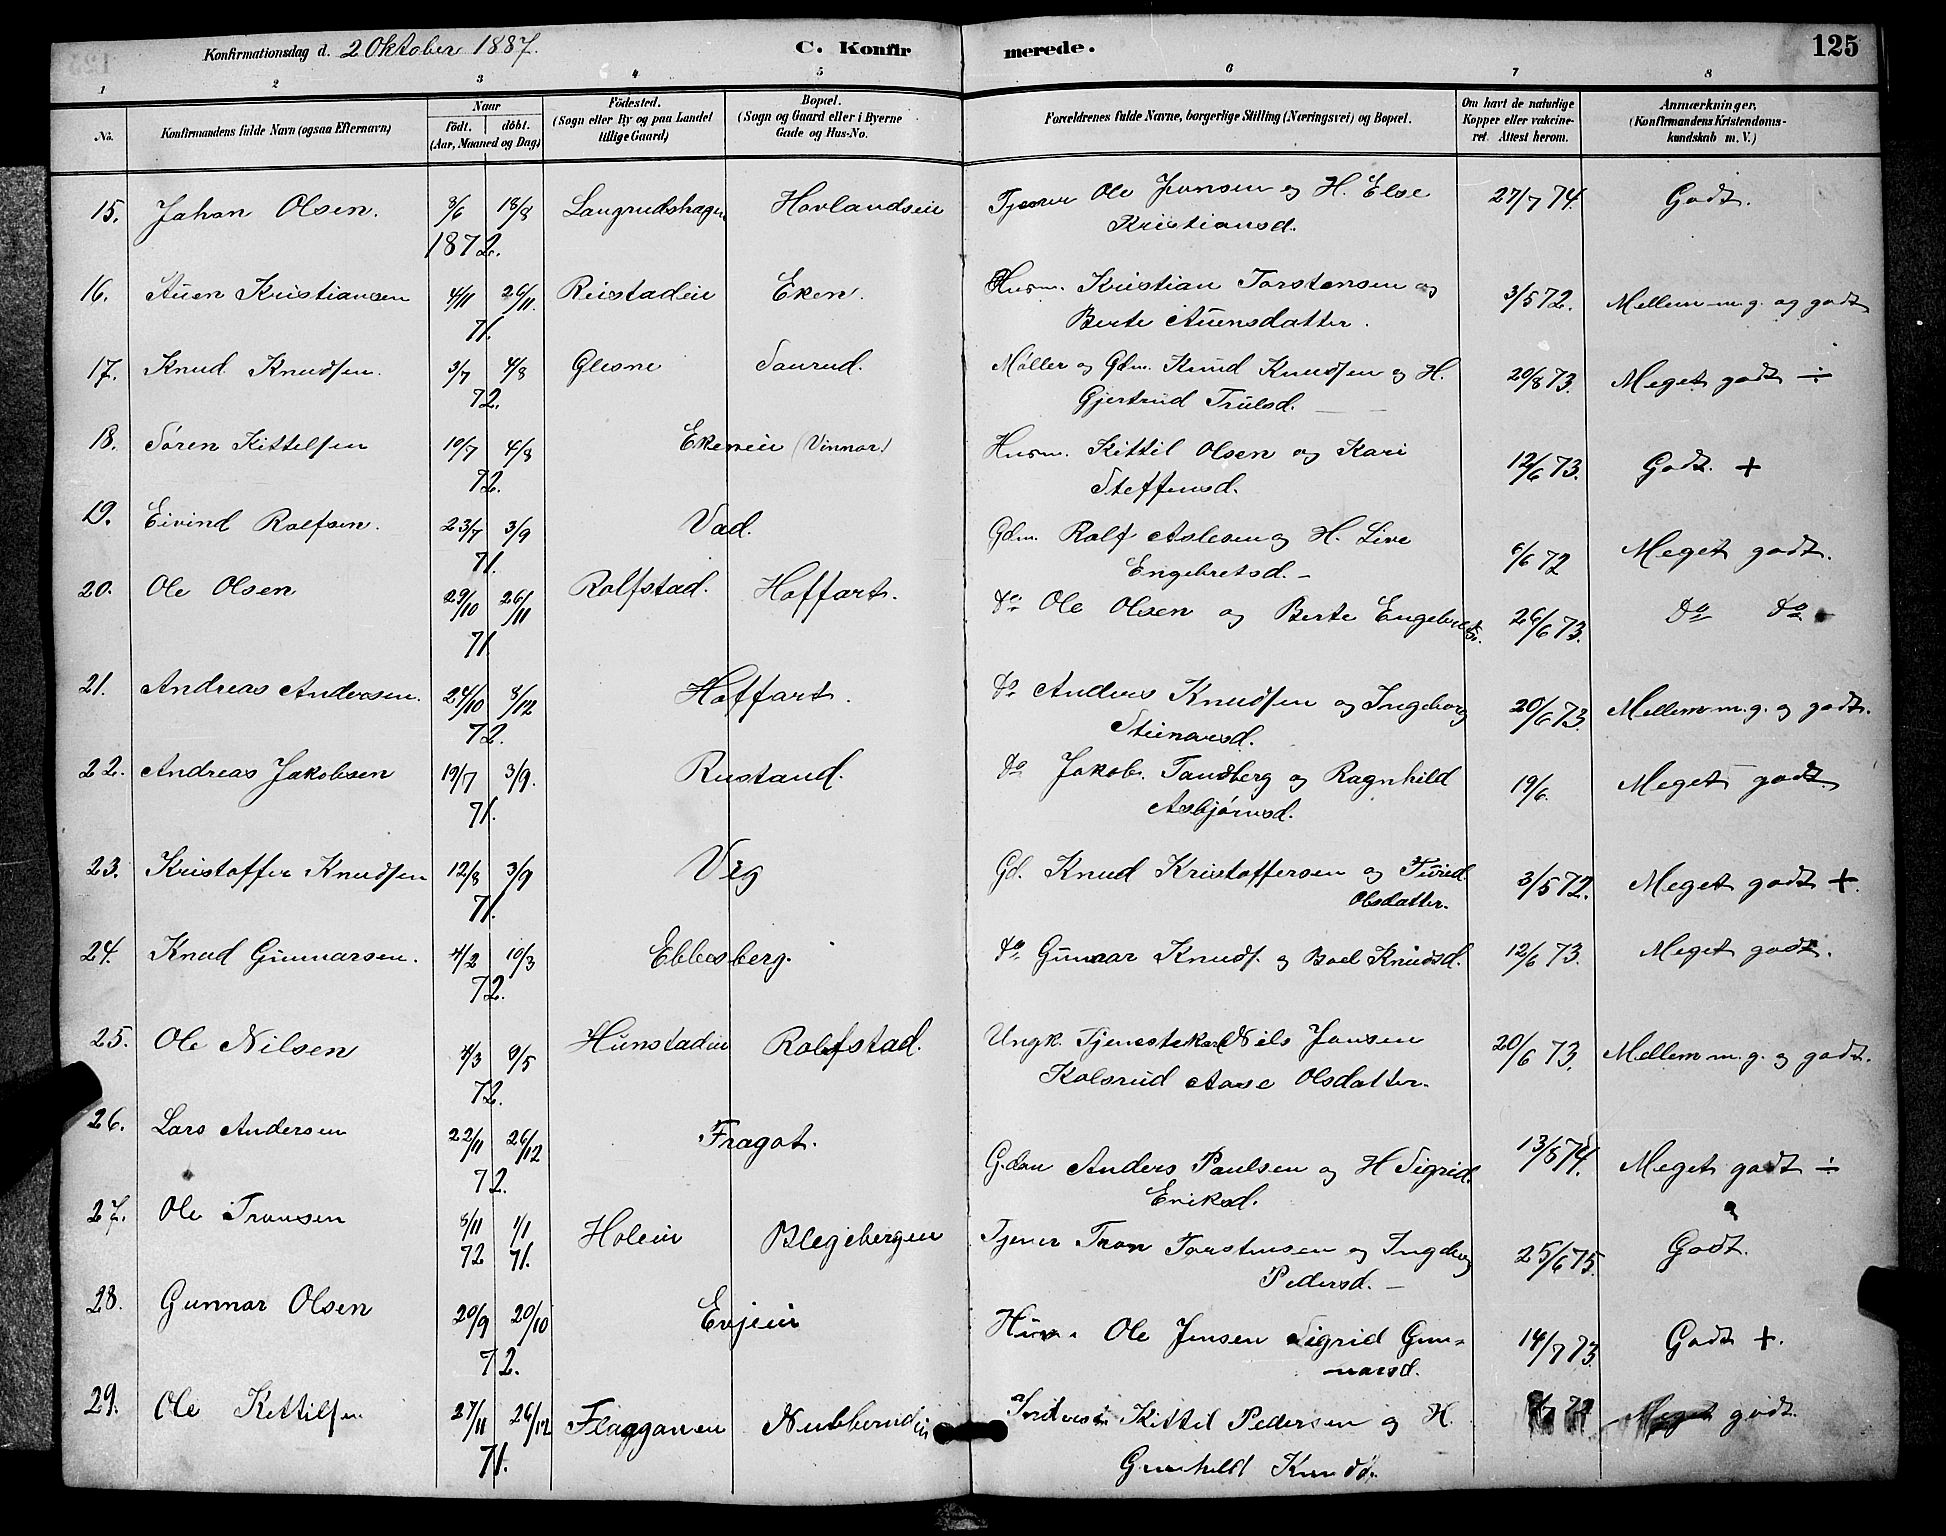 Konfirmationsdag d. 2 Oktober 1887. C. Konfirmerede. 125
1 2 3 4 5 6 7 8
No. Konfirmandens fulde Navn (ogsaa Efternavn) Naar födt. döbt. (Aar, Maaned og Dag) Födested. (Sogn eller By og paa Landet tillige Gaard) Bopæl. (Sogn og Gaard eller i Byerne Gade og Hus-No. Forældrenes fulde Navne, borgerlige Stilling (Næringsvei) og Bopæl. Om havt de naturlige Kopper eller vakcineret. Attest herom. Anmærkninger, (Konfirmandens Kristendomskundskab m. V.)
15. Johan Olsen. 3/6 18/8 Langrudshagen Hovlandseie Tjener Ole Jonsen og H. Else 27/7 74. Godt.
1872. Kristiansd.
16. Auen Kristiansen 4/11 26/11. Reistadeie Eken. Husm. Kristian Torstensen og 3/5 72. Mellem m. g. og godt
71. Berte Auensdatter.
17. Knud Knudsen. 3/7 4/8 Glesne Saurud. Møller og Gdm. Knud Knudsen og H. 20/8 73. Meget godt ÷
72. Gjertrud Trulsd. –
18. Søren Kittelsen 19/7 4/8 Ekeneie (Vinnar) Husm. Kittil Olsen og Kari 12/6 73. Godt. +
72. Steffensd.
19. Eivind Rolfsen. 23/7 3/9 Vad. Gdm. Rolf Aslesen og H. Live 6/6 72 Meget godt.
71. Engebretsd. –
20. Ole Olsen 29/10 26/11 Rolfstad. Hoffart. do Ole Olsen og Berte Engebretsd. 26/6 73. do do
71
21. Andreas Andersen. 24/10 8/12 Hoffart. do Anders Knudsen og Ingeborg 20/6 73. Mellem m. g. og godt.
72. Steinarsd.
22. Andreas Jakobsen 19/7 3/9. Rustand. do Jakob. Tandberg og Ragnhild 19/6. Meget godt.
71. Asbjørnsd.
23. Kristoffer Knudsen 12/8 3/9 Vig Gd. Knud Kristoffersen og Turid 3/5 72. Meget godt +.
71. Olsdatter.
24. Knud Gunnarsen. 4/2 10/3 Ebbesberg. do Gunnar Knuds. og Boel Knudsd. 12/6 73. Meget godt.
72.
25. Ole Nilsen 4/3 9/5 Hunstadeie Rolfstad. Ungk. Tjenestekarl Nils Jonsen 20/6 73. Mellem m. g. og godt.
72. Kolsrud Aase Olsdatter.
26. Lars Andersen 22/11 26/12 Fragot. 13/8 74.
72. Gdm Anders Paulsen og H Sigrid Meget godt ÷
Eriksd.
27. Ole Tronsen 8/11 1/1 Holeie Blegebergeie Tjener Tron Torstensen og Ingeborg 25/6 75. Godt.
72 71. Pedersd. –
28. Gunnar Olsen 20/9 20/10 Evjeeie Husm. Ole Jensen Sigrid Gun- 14/7 73. Godt +.
72. narsd.
29. Ole Kittilsen 27/11 26/12 Flagganeie Nubberudeie Kittil Pedersen og H. 72 Meget godt.
71. Gunhild Knudsd.